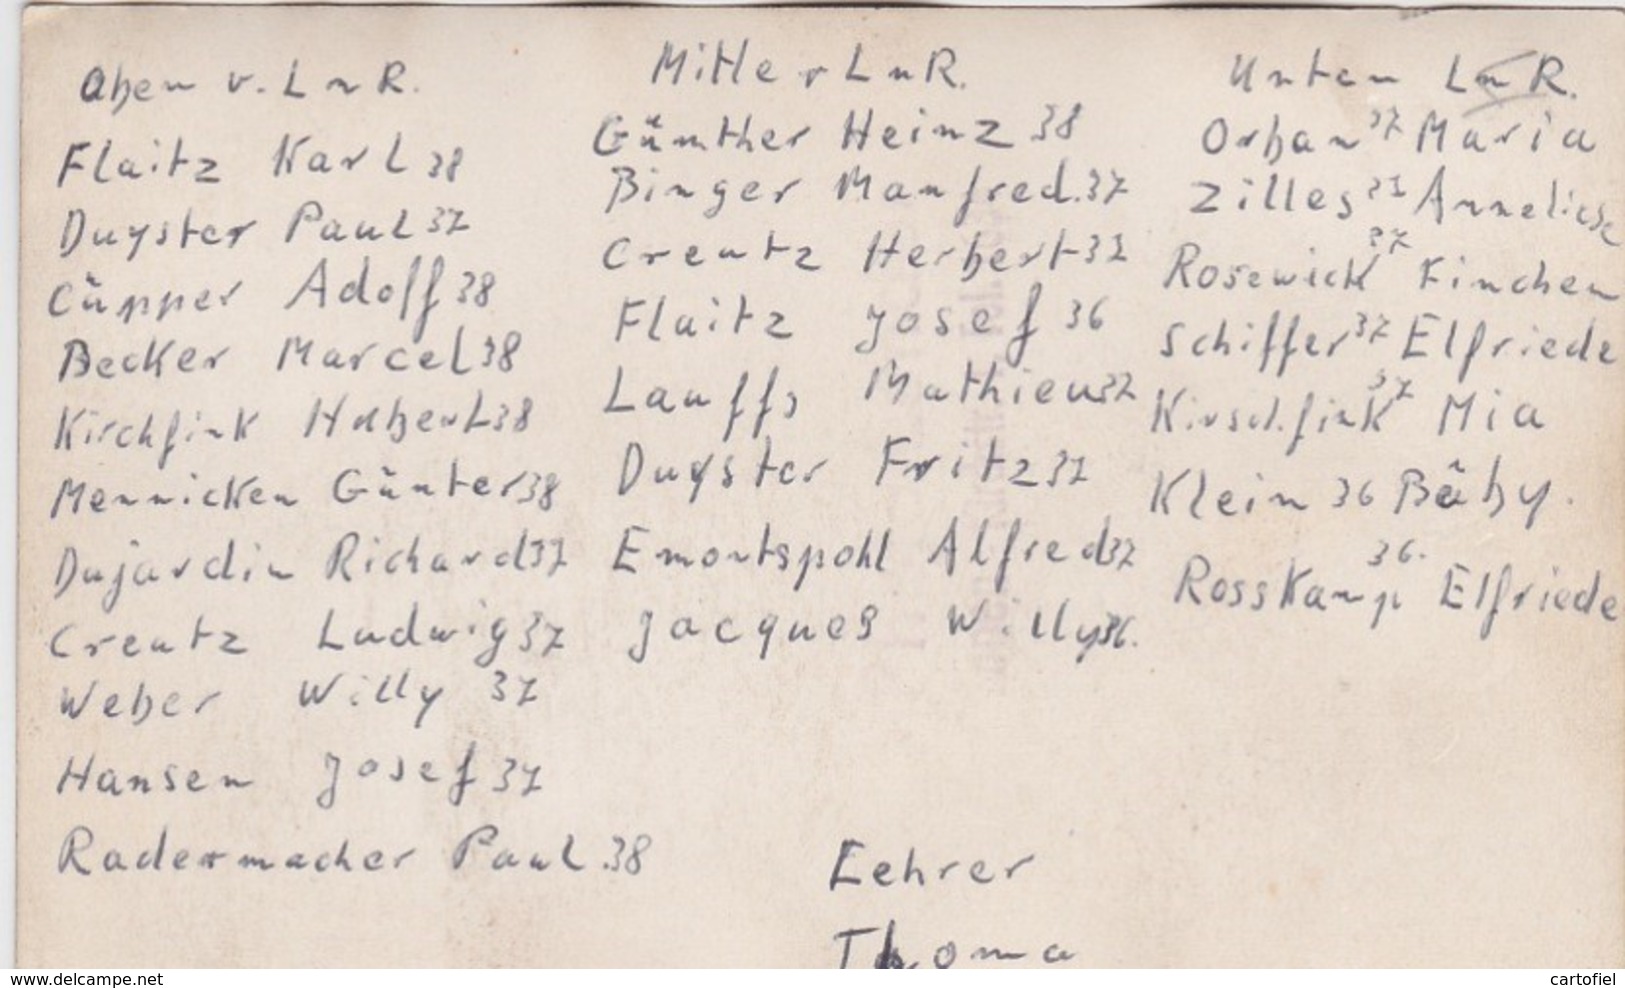 Oben v. L n R.
Flaitz Karl 38
Duyster Paul 37
Cüpper Adolf 38
Becker Marcel 38
Kirchfink Hubert 38
Mennicken Günter 38
Dujardin Richard 37
Creutz Ludwig 37
Weber Willy 37
Hansen Josef 37
Radermacher Paul .38
Mitte v L n R.
Günther Heinz 38
Binger Manfred.37
Creutz Herbert 37
Flaitz Josef 36
Lauffs Mathieu 37
Duyster Fritz 37
Emontspohl Alfred 37
Jacques Willy 36.
Unten L n R.
Orban 37 Maria
Zilles 37 Anneliese
Rosewick 37 Finchen
Schiffer 37 Elfriede
Kirschfink 37 Mia
Klein 36 Bäby.
Rosskamp 36. Elfriede
Lehrer
Thoma
www.delcampe.net
cartofiel